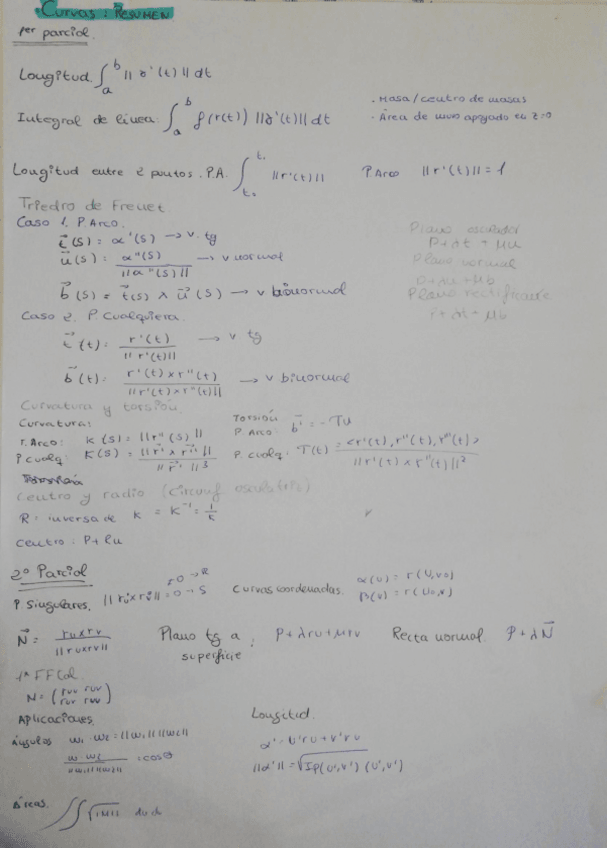 Curvas: RESUMEN
1er parcial.
Longitud. ∫_a^b ||γ'(t)|| dt
Integral de línea: ∫_a^b f(r(t)) ||γ'(t)|| dt
. Masa/centro de masas
. Área de muro apoyado en z=0
Longitud entre 2 puntos. P.A. ∫_{t0}^{t1} ||r'(t)||
P.Arco ||r'(t)|| = 1
Triedro de Frenet.
Caso 1. P.Arco.
t(s) = α'(s) → v. tg
n(s) = α''(s) / ||α''(s)|| → v normal
b(s) = t(s) ∧ n(s) → v binormal
Plano osculador
P + λt + μn
Plano normal
P + λn + μb
Plano rectificante
P + λt + μb
Caso 2. P Cualquiera.
t(t) = r'(t) / ||r'(t)|| → v tg
b(t): r'(t) x r''(t) / ||r'(t) x r''(t)|| → v binormal
Curvatura y torsión.
Curvatura:
P. Arco: K(s) = ||r''(s)||
P cualq: K(s) = ||r' x r''|| / ||r'||^3
Torsión
P Arco: b' = - Tn
P. cualq: T(t) = <r'(t), r''(t), r'''(t)> / ||r'(t) x r''(t)||^2
Centro y radio (circunf osculatriz)
R = inversa de K = K^-1 = 1/K
Centro: P + Rn
2º Parcial
P Singulares. ||ru x rv|| ≠0 → R
=0 → S
Curvas coordenadas. α(u) = r(u,v0)
β(v) = r(u0,v)
N = ru x rv / ||ru x rv||
Plano tg a superficie: P + λru + μrv
Recta normal. P + λN
1ª FF Cal.
Aplicaciones.
Ángulos w1 · w2 = ||w1|| ||w2||
w1 w2 / ||w1|| ||w2|| = cosθ
Longitud.
α' = u'ru + v'rv
||α'|| = √Ip(u',v')(u',v')
Áreas. ∫∫ √|M|